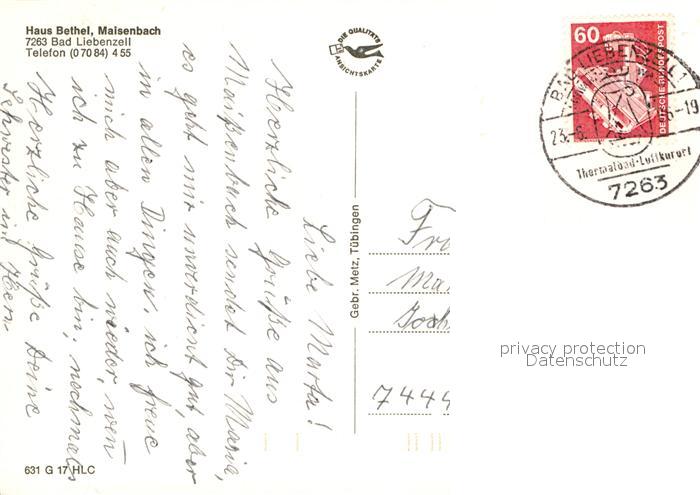 Haus Bethel, Maisenbach
7263 Bad Liebenzell
Telefon (0 70 84) 4 55
DIE QUALITÄTS
ANSICHTSKARTE
Liebe Marta!
Herzliche Grüße aus
Maißenbach sendet Dir Maria,
es geht mir unverdient gut, aber
in allen Dingen. ich freue
mich aber auch wieder, wen
ich zu Hause bin, nochmals
Herzliche Grüße Deine
Schwester im Herrn
Gebr. Metz, Tübingen
631 G 17 HLC
60
DEUTSCHE BUNDESPOST
BAD LIEBENZELL 1
23.-8.
-19
Thermalbad-Luftkurort
7263
Fr
Ma
Joch
7444
privacy protection
Datenschutz